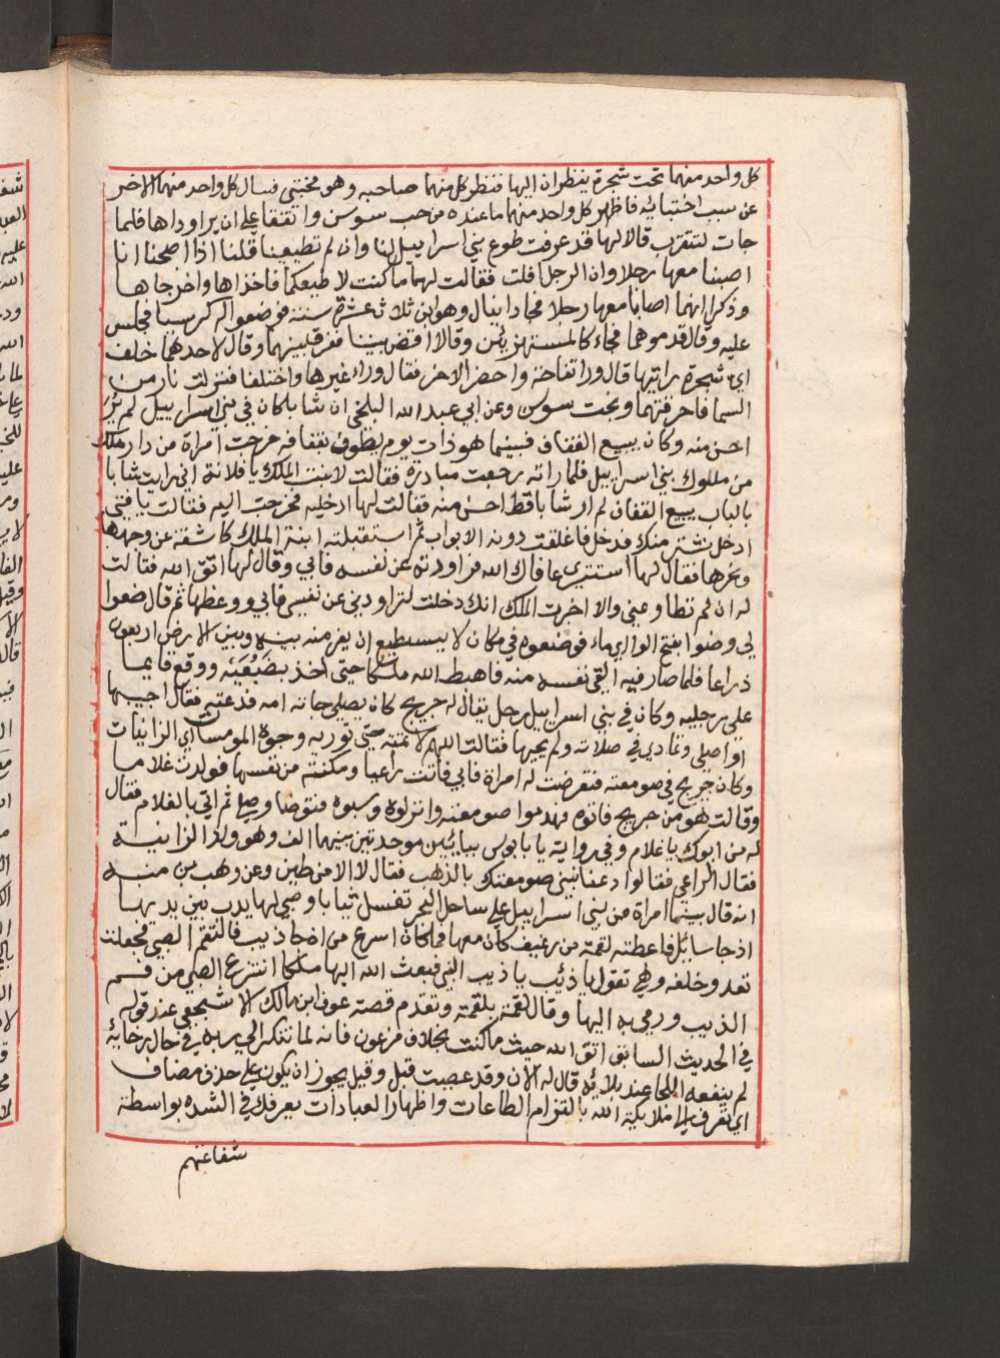 كل واحد منهما تحت شجرة ينظران اليها فنظر كل منهما صاحبه وهو مختبي فسال كل واحد منهما الاخر
عن سبب اختبائه فاظهر كل واحد منهما ما عنده من حب سوسن واتفقا على ان يراوداها فلما
جات لتتقرب قالا لها قد عرفت طوع بني اسراييل لنا وان لم تطيعينا قلنا اذا اصبحنا انا
اصبنا معها رجلا وان الرجل افلت فقالت لهما ما كنت لاطيعكما فاخذاها واخرجاها
وذكرا انهما اصابا معها رجلا فجا دانيال وهو ابن ثلاث عشرة سنة فوضعوا له كرسيا فجلس
عليه وقال قدموهما فجاء كالمستهزيئن وقالا اقض بيننا ففرق بينهما وقال لاحدهما خلف
اي شجرة رايتها قال ورا تفاحة واحضر الاخر فقال وراء غيرها واختلفا فنزلت نار من
السما فاحرقتهما ونجت سوسن وعن ابي عبد الله البلخي ان شابا كان في بني اسراييل لم ير
احسن منه وكان يبيع القفاف فبينما هو ذات يوم يطوف بقفافه خرجت امراة من دار ملك
من ملوك بني اسراييل فلما راته رجعت مبادرة فقالت لابنت الملك يا فلانة اني رايت شابا
بالباب يبيع القفاف لم ار شابا قط احسن منه فقالت لها ادخليه فخرجت اليه فقالت يا فتى
ادخل نشتر منك فدخل فاغلقت دونه الابواب ثم استقبلته ابنة الملك كاشفة عن وجهها
ونحرها فقال لها استتري عافاك الله فراودته عن نفسه فابي وقال لها اتق الله فقالت
له ان لم تطاوعني والا اخبرت الملك انك دخلت لتراودني عن نفسي فابي ووعظها ثم قال ضعوا
لي وضوا بفتح الواو اي ماء فوضعوه في مكان لا يستطيع ان يفر منه بينه وبين الارض اربعون
ذراعا فلما صار فيه القى نفسه منه فاهبط الله ملكا حتى اخذ بضبعيه ووقع قايما
على رجليه وكان في بني اسراييل رجل يقال له جريج كان يصلي جاته امه فدعته فقال اجيبها
او اصلي وتمادي في صلاته ولم يجبها فقالت اللهم لا تمته حتى توريه وجوه المومسات اي الزانيات
وكان جريج في صومعته فتعرضت له امراة فابي فاتت راعيا ومكنته من نفسها فولدت غلاما
وقالت هو من جريج فاتوه فهدموا صومعته وانزلوه وسبوه فتوضا وصلى ثم اتي بالغلام فقال
له من ابوك يا غلام وفي رواية يا بابوس بباءين موحدتين بينهما الف وهو ولد الزانية
فقال الراعي فقالوا دعنا نبني صومعتك بالذهب فقال لا الا من طين وعن وهب بن منبه
انه قال بينما امراة من بني اسراييل على ساحل البحر تغسل ثيابا وصبي لها يدب بين يديها
اذ جا سايل فاعطته لقمة من رغيف كان معها فما كان اسرع من ان جا ذيب فالتقم الصبي فجعلت
تعدو خلفه وهي تقول يا ذئب يا ذيب ابني فبعث الله اليها ملكا انتزع الصبي من فم
الذيب ورمي به اليها وقال لقمة بلقمة وتقدم قصة عوف ابن مالك الاشجعي عند قوله
في الحديث السابق اتق الله حيث ما كنت بخلاف فرعون فانه لما تنكر الى ربه في حال رخائه
لم ينفعه اللجا عند بلائه قال له الان وقد عصيت قبل وقيل يجوز ان يكون على حذف مضاف
اي تعرف الى ملايكة الله بالتزام الطاعات واظهار العبادات يعرفك في الشدة بواسطة
شفاعتهم